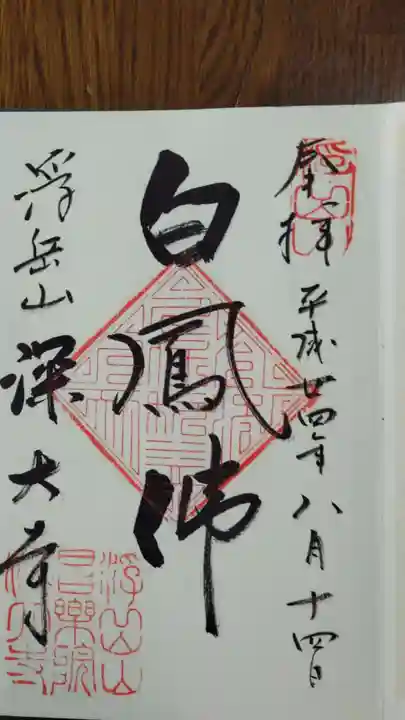 奉拝 平成廿四年八月十四日
白鳳佛
浮岳山
深大寺
浮岳山
昌樂院
深大寺